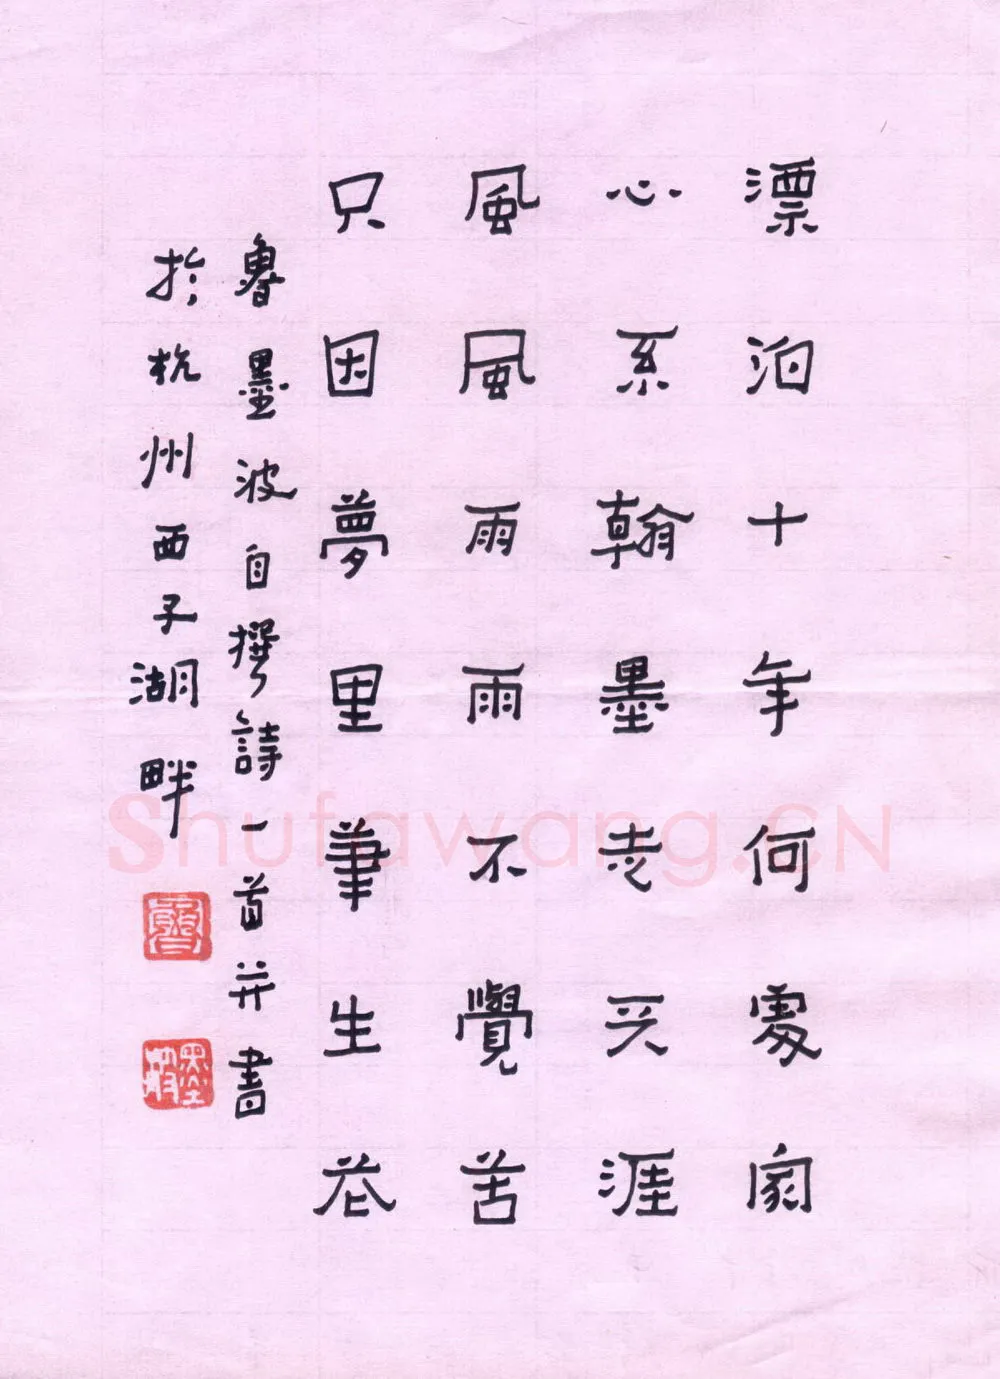 漂泊十年何處家
心系翰墨走天涯
風風雨雨不覺苦
只因夢里筆生花
魯墨波自撰詩一首并書
於杭州西子湖畔
魯
墨波
Shufawang.CN